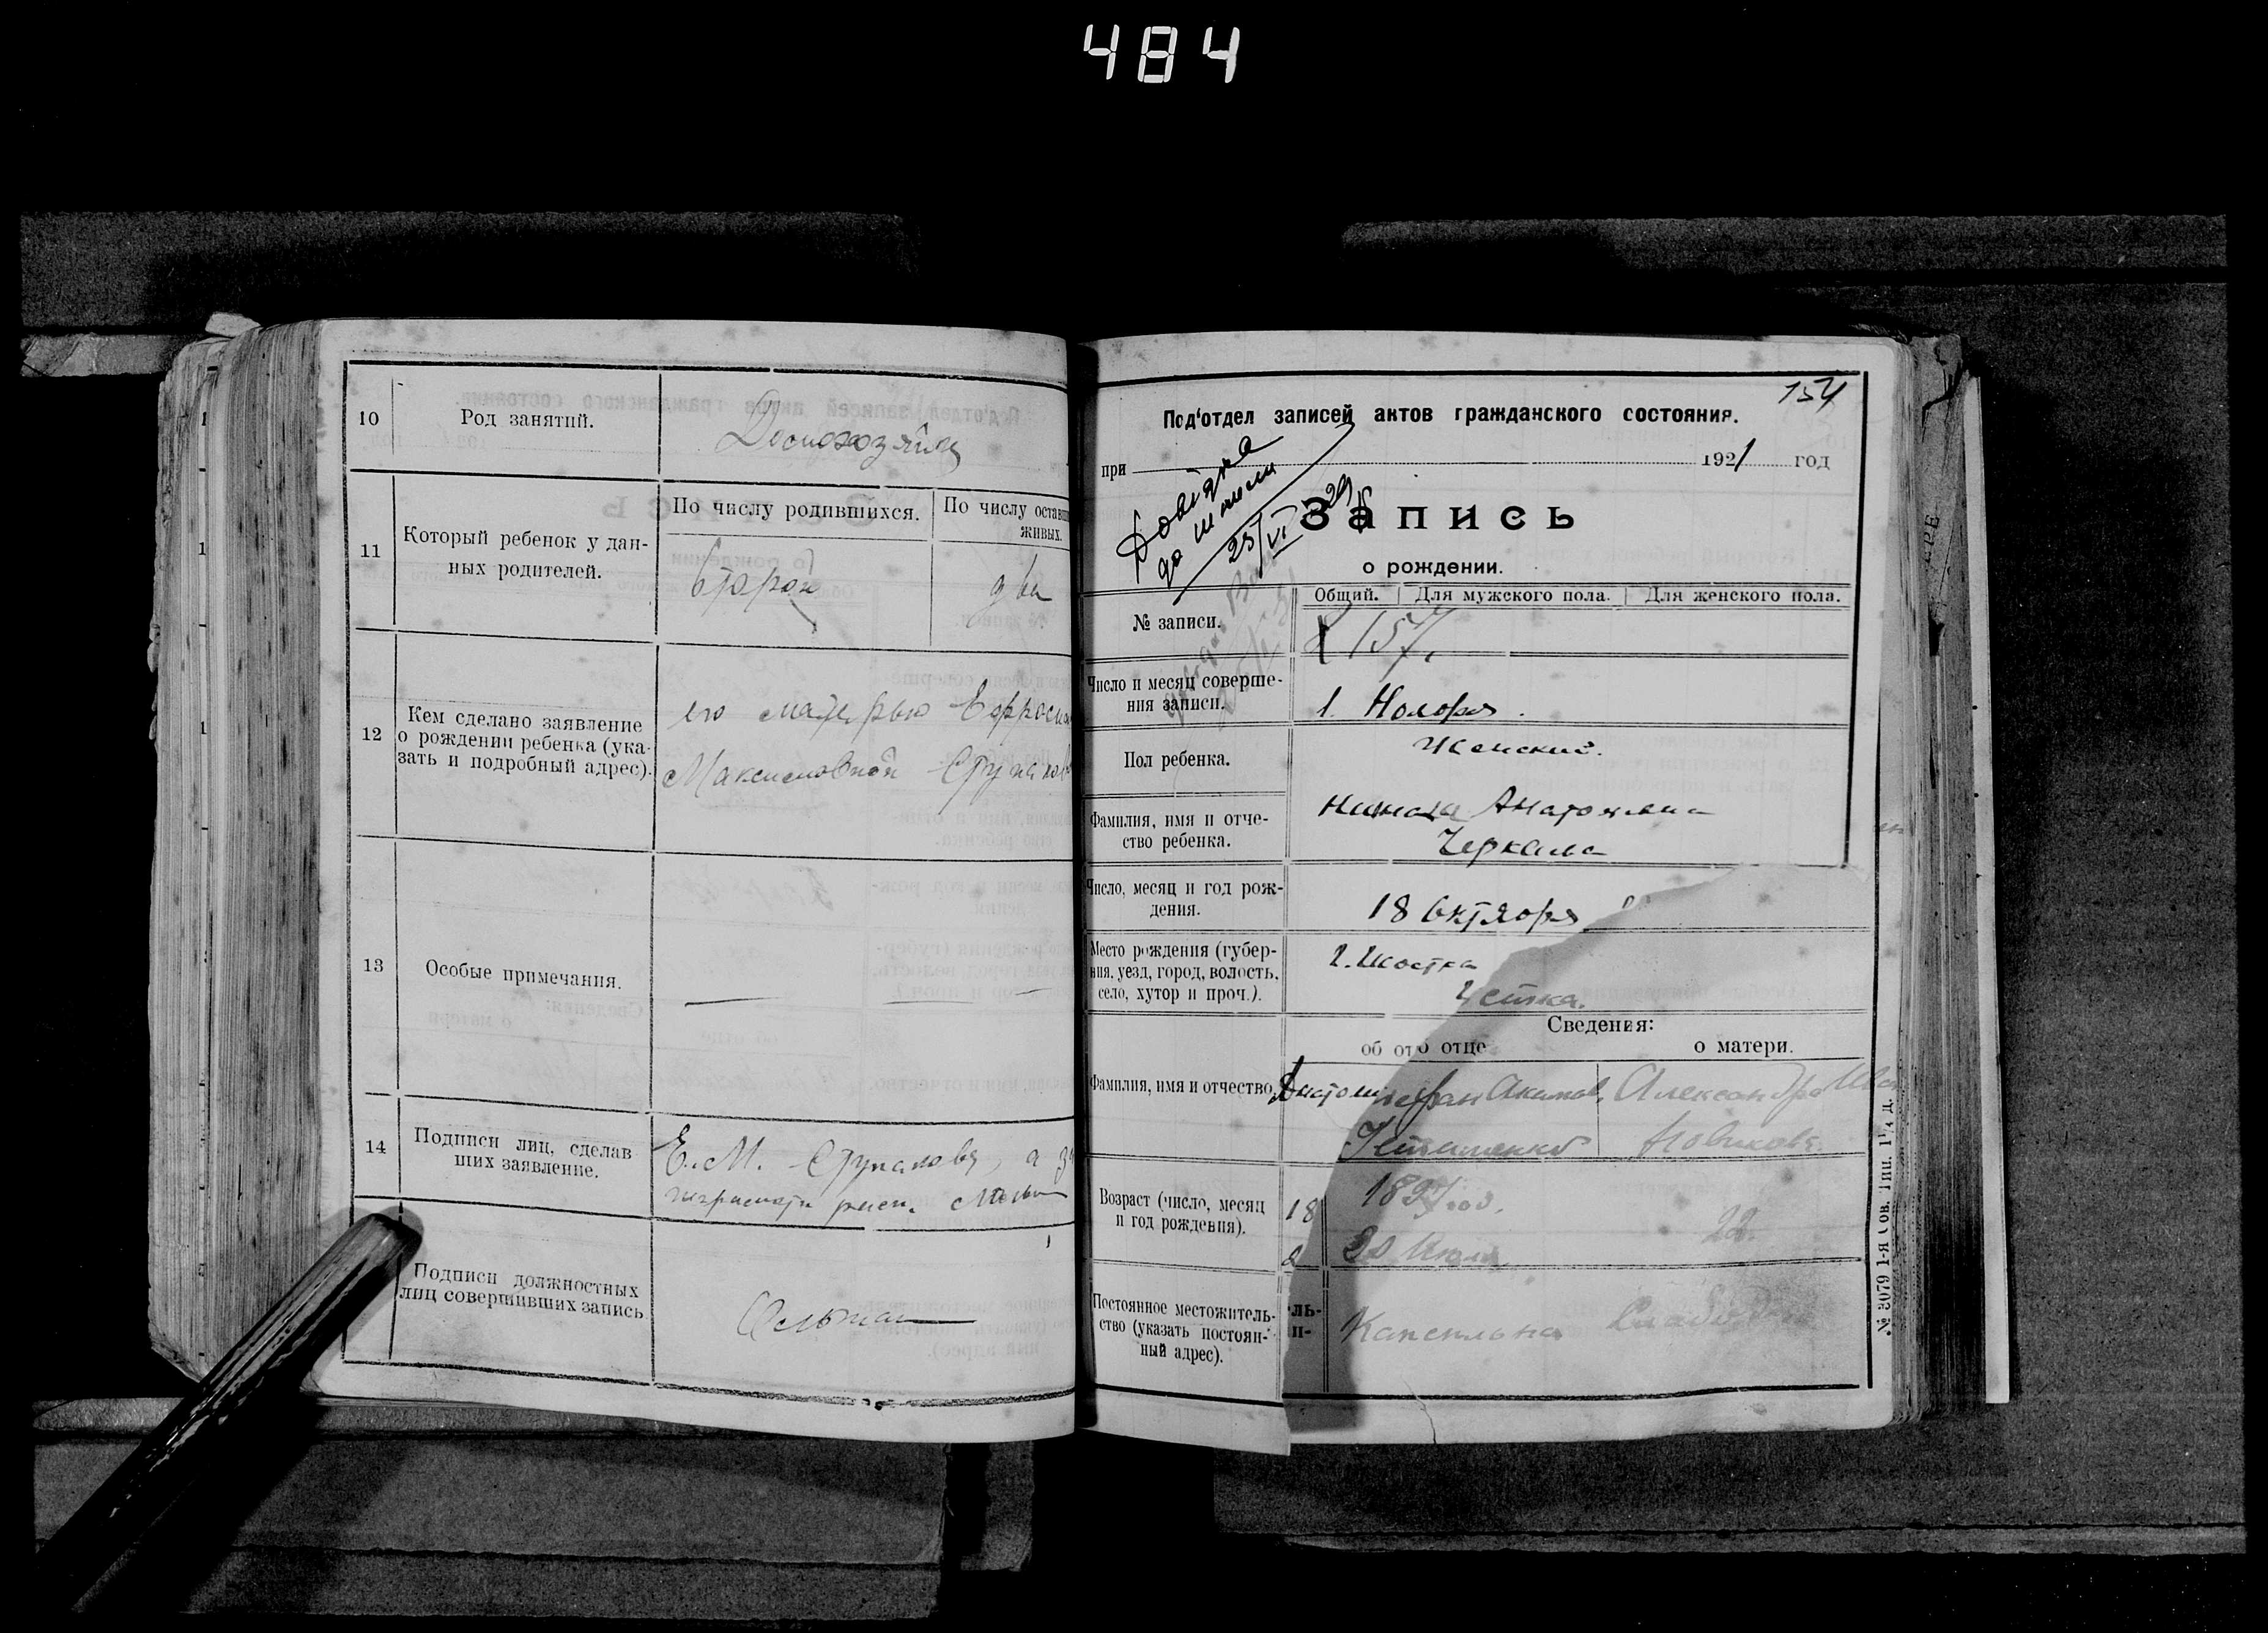 484
10
Род занятий.
Домохозяйка
11
Который ребенок у дан-
ных родителей.
По числу родившихся.
По числу остав
живых.
второй
два
12
Кем сделано заявление
о рождении ребенка (ука-
зать и подробный адрес).
его матерью
Максимовной
13
Особые примечания.
14
Подписи лиц, сделав
ших заявление.
Е. М.
Подписи должностных
лиц совершивших запись
154
Под'отдел записей актов гражданского состояния.
при
1921 год
Довідка
до школи
25/VI 29
Запись
о рождении.
№ записи.
Общий. Для мужского пола. Для женского пола.
157
Число и месяц соверше-
ния записи.
1. Ноября.
Пол ребенка.
Женский.
Фамилия, имя и отче-
ство ребенка.
Анатолиевна
Число, месяц и год рож-
дения.
18 Октября
Место рождения (губер-
ния, уезд, город, волость,
село, хутор и проч.).
г. Шостка
стка.
Сведения:
об от о отце
о матери.
Фамилия, имя и отчество,
Анатоли
Акимов.
Александра
Новикова.
Возраст (число, месяц
и год рождения).
18
1897 год.
22
Июля
Постоянное местожитель-
ство (указать постоян-
ный адрес).
ль-
н-
Капсильна
Слободка
№ 3079 1-я Сов. Тип.